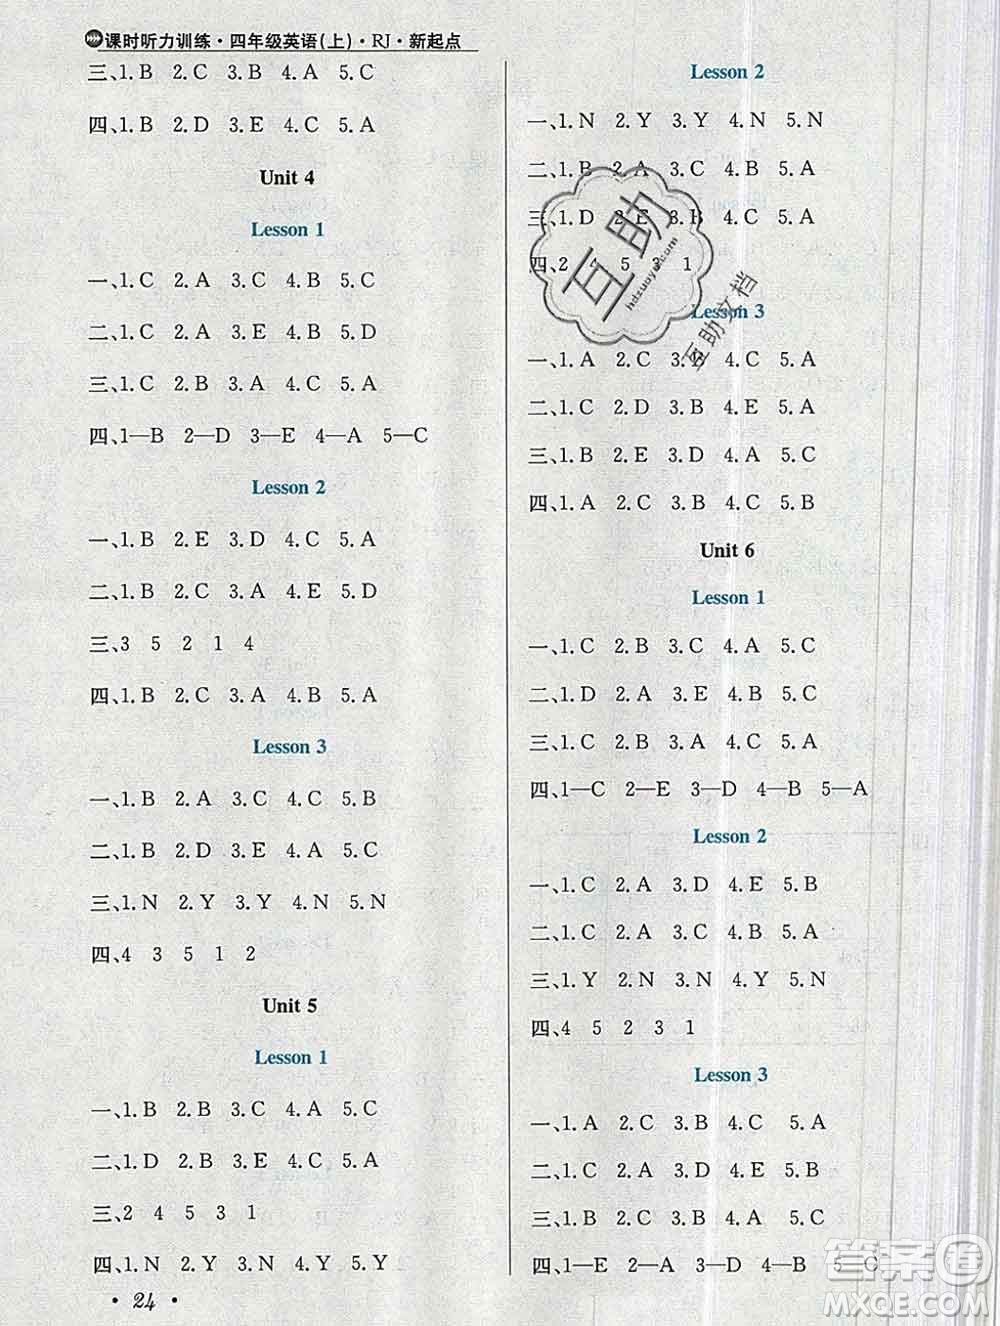 课时听力训练·四年级英语(上)·RJ·新起点
三、1.B 2.C 3.B 4.A 5.C
四、1.B 2.D 3.E 4.C 5.A
Unit 4
Lesson 1
一、1.C 2.A 3.C 4.B 5.A
二、1.B 2.C 3.A 4.E 5.D
三、1.C 2.B 3.A 4.A 5.C
四、1—B 2—D 3—E 4—A 5—C
Lesson 2
一、1.B 2.E 3.D 4.C 5.A
二、1.B 2.C 3.A 4.E 5.D
三、3 5 2 1 4
四、1.B 2.C 3.A 4.B 5.A
Lesson 3
一、1.B 2.A 3.C 4.C 5.B
二、1.B 2.D 3.E 4.A 5.C
三、1.N 2.Y 3.Y 4.N 5.N
四、4 3 5 1 2
Unit 5
Lesson 1
一、1.B 2.B 3.C 4.A 5.C
二、1.D 2.B 3.E 4.C 5.A
三、2 4 5 3 1
四、1.N 2.Y 3.N 4.Y 5.Y
· 24 ·
Lesson 2
一、1.N 2.Y 3.Y 4.N 5.N
二、1.B 2.A 3.C 4.B 5.A
三、1.D 2.E 3.B 4.C 5.A
四、2 4 5 3 1
Lesson 3
一、1.A 2.C 3.B 4.C 5.A
二、1.C 2.D 3.B 4.E 5.A
三、1.B 2.E 3.D 4.A 5.C
四、1.A 2.C 3.B 4.C 5.B
Unit 6
Lesson 1
一、1.C 2.B 3.C 4.A 5.C
二、1.D 2.A 3.E 4.B 5.C
三、1.C 2.B 3.C 4.B 5.A
四、1—C 2—E 3—D 4—B 5—A
Lesson 2
一、1.C 2.A 3.D 4.E 5.B
二、1.B 2.A 3.C 4.B 5.A
三、1.Y 2.N 3.N 4.Y 5.N
四、4 5 2 3 1
Lesson 3
一、1.A 2.C 3.B 4.C 5.A
二、1.C 2.B 3.C 4.B 5.A
三、1.C 2.B 3.A 4.C 5.B
四、1—E 2—A 3—D 4—B 5—C
互助
hdzuoye.com
互助文档
答案圈
MXQE.COM